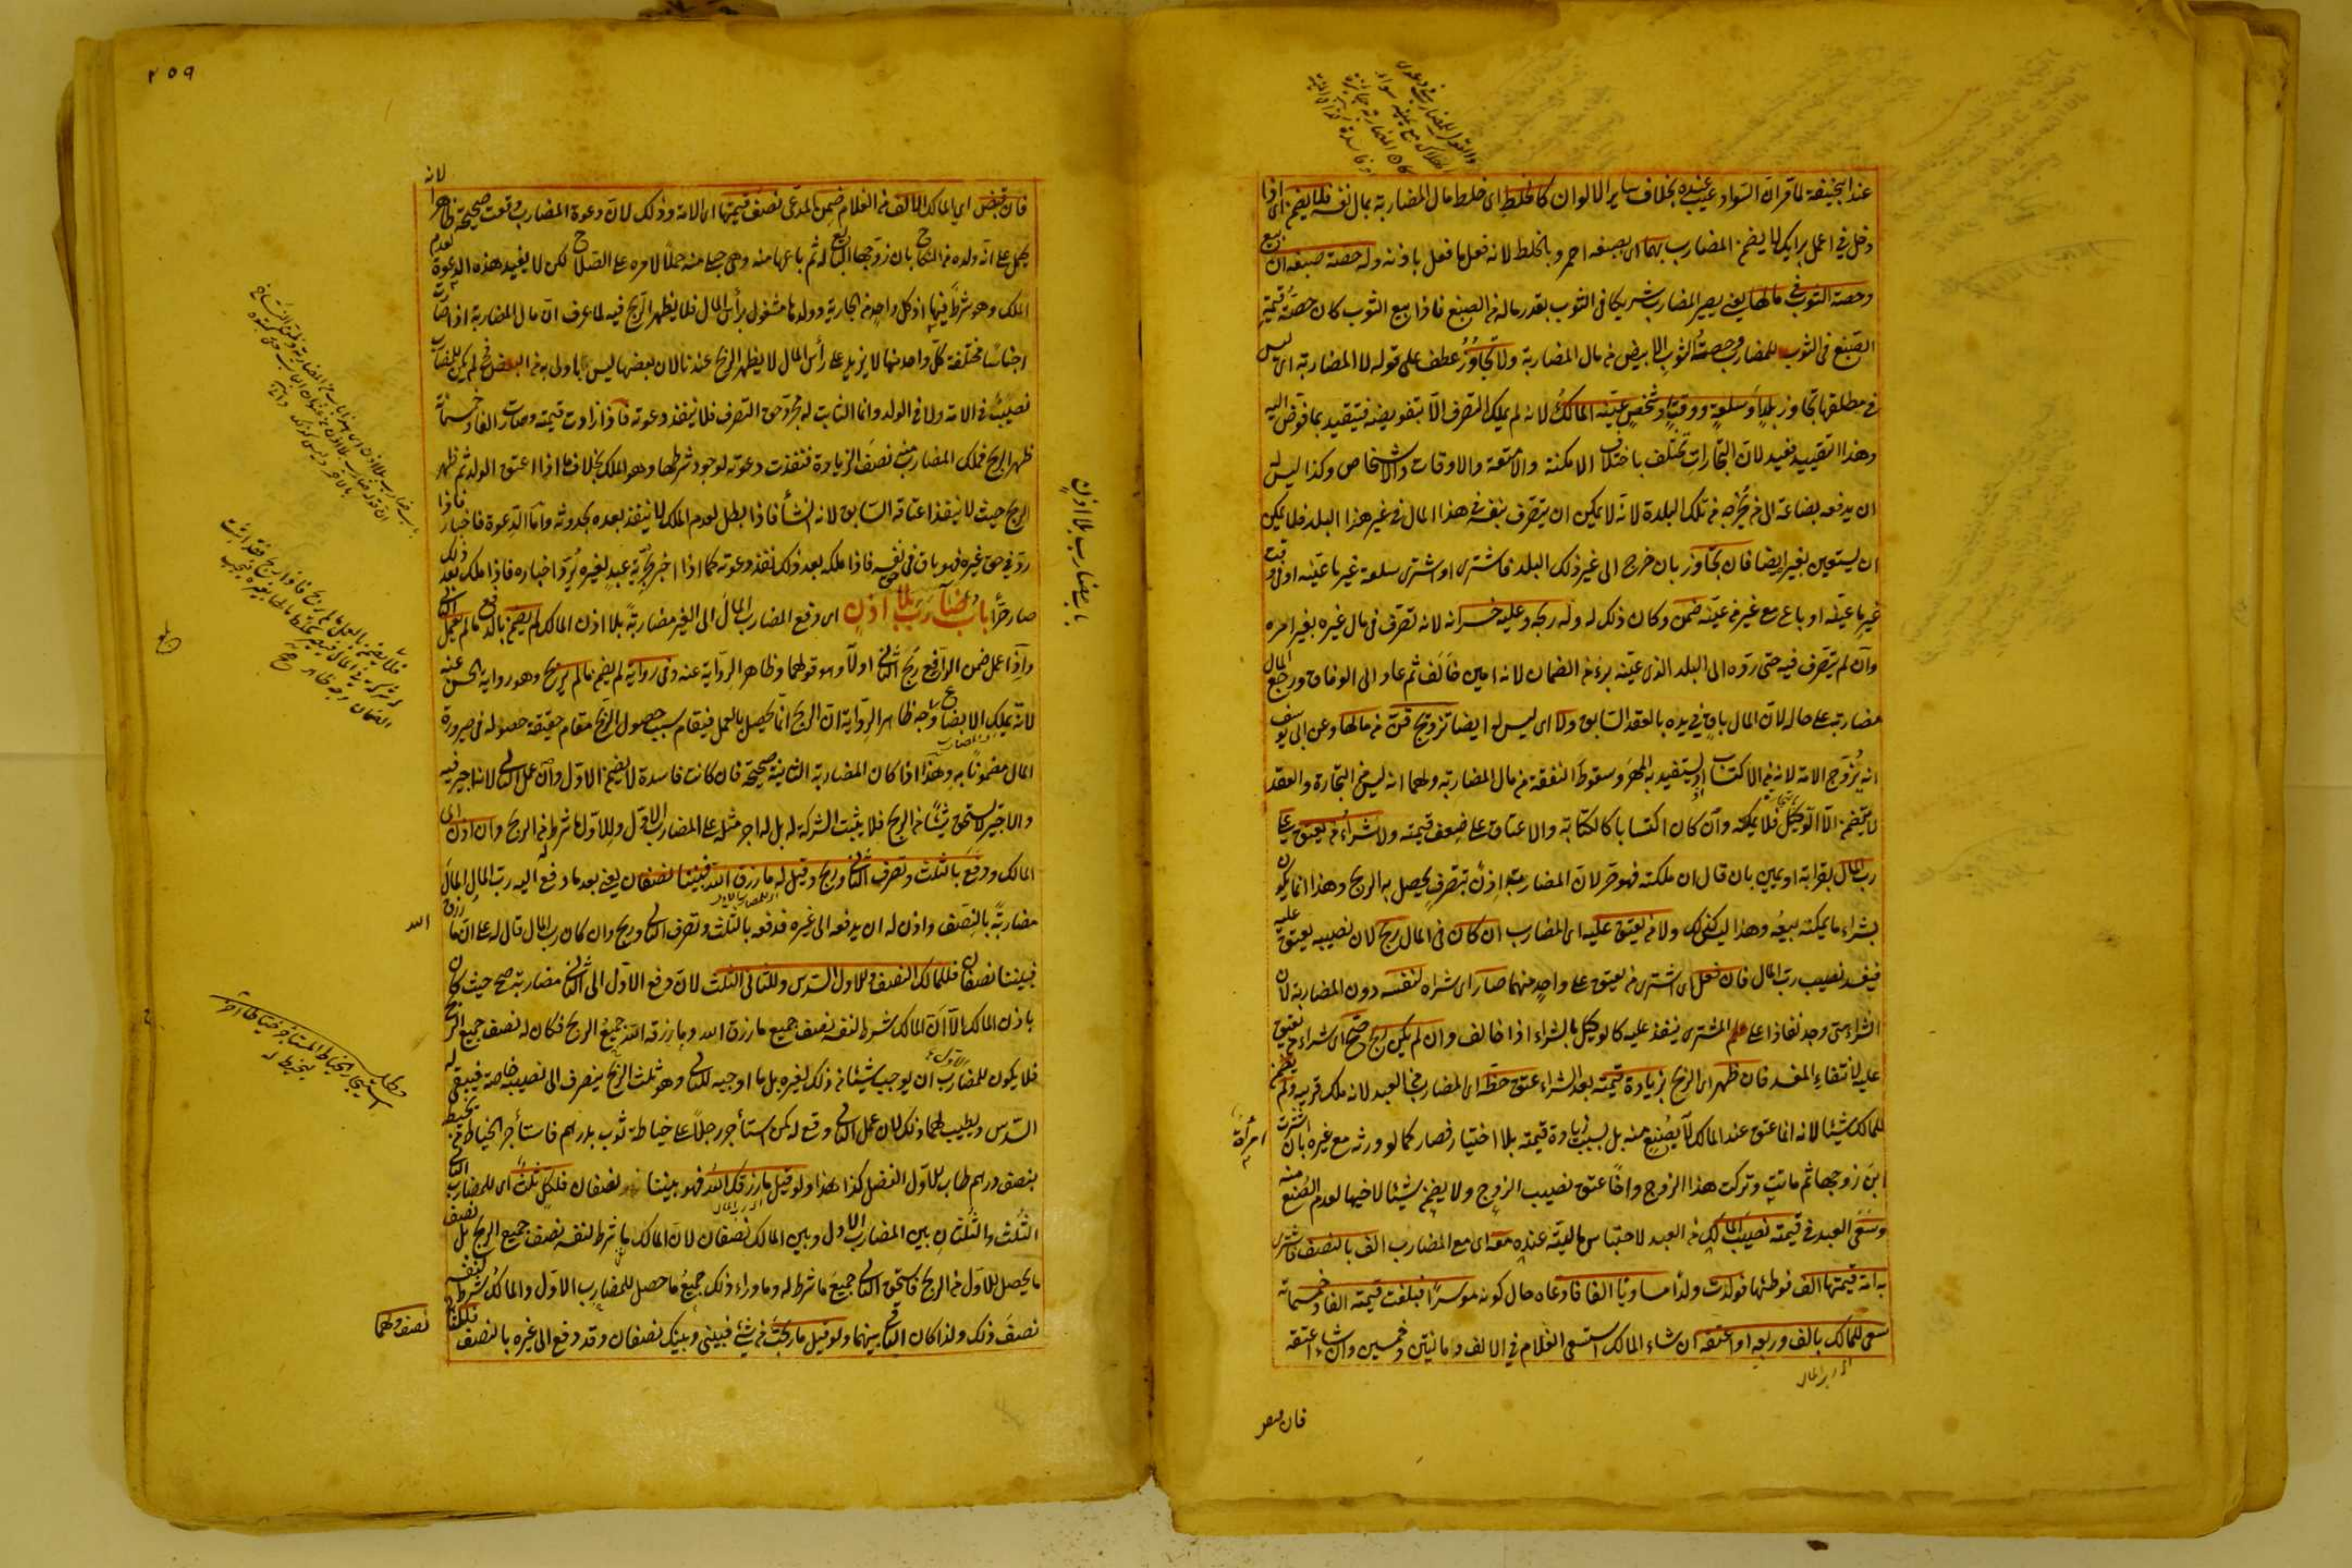 عند ابيحنيفة لما قر ان السواد عيب عنده بخلاف ساير الالوان كالخلط اى خلط مال المضاربة بمال نفسه فلا يضمن اى اذا
دخل في اعمل برايك لا يضمن المضارب بهما اى بصبغه احمر و بالخلط لانه فعل ما فعل باذنه وله حصة صبغه ان بيع
وحصة الثوب في مالها يعنى يصير المضارب شريكا فى الثوب بقدر ماله من الصبغ فاذا بيع الثوب كان حصة قيمة
الصبغ فى الثوب للمضارب وحصة الثوب الابيض من مال المضاربة ولا تجاوز عطف على قوله لا المضاربة اى ليس
فى مطلقها تجاوز بلد او سلعة او وقت او شخص عينه المالك لانه لم يملك التصرف الا بتفويضه فيتقيد بما فوض اليه
وهذا التقييد مفيد لان التجارات تختلف باختلاف الامكنة والامتعة والاوقات والاشخاص وكذا ليس له
ان يدفعه بضاعة الى من يخرجه من تلك البلدة لانه لا يمكن ان يتصرف بنفسه فى هذا المال فى غير هذا البلد فلا يمكن
ان يستعين بغيره ايضا فان تجاوز بان خرج الى غير ذلك البلد فاشترى او اشترى سلعة غير ما عينه او فى وقت
غير ما عينه او باع مع غير من عينه ضمن وكان ذلك له وله ربحه وعليه خسرانه لانه تصرف فى مال غيره بغير امره
وان لم يتصرف فيه حتى رده الى البلد الذى عينه برء من الضمان لانه امين خالف ثم عاد الى الوفاق ورجع المال
مضاربة على حاله لان المال باق فى يده بالعقد السابق ولا اى ليس له ايضا تزويج قن من مالها وعن ابى يوسف
انه يزوج الامة لانه من الاكتساب اذ يستفيد به المهر وسقوط النفقة من مال المضاربة ولهما انه ليس من التجارة والعقد
لا يتضمن الا التوكيل بالتجارة فلا يملكه وان كان اكتسابا كالكتابة والاعتاق على ضعف قيمته ولا شراء من يعتق على
رب المال بقرابة او يمين بان قال ان ملكته فهو حر لان المضاربة اذن بتصرف يحصل به الربح وهذا انما يكون
بشراء ما يمكنه بيعه وهذا ليس كذلك ولا من يعتق عليه اى المضارب ان كان فى المال ربح لان نصيبه يعتق عليه
فيفسد نصيب رب المال فان فعل اى اشترى من يعتق على واحد منهما صار اى شراه لنفسه دون المضاربة لان
الشراء متى وجد نفاذا على المشترى ينفذ عليه كالوكيل بالشراء اذا خالف وان لم يكن ربح صح اى شراء من يعتق
عليه لانتفاء المفسد فان ظهر اى الربح بزيادة قيمته بعد الشراء عتق حظه اى المضارب من العبد لانه ملك قريبه ولم يضمن
للمالك شيئا لانه انما عتق عند المالك لا بصنع منه بل بسبب زيادة قيمته بلا اختيار فصار كما لو ورثه مع غيره بان اشترت
امرأة
ابن زوجها ثم ماتت وتركت هذا الزوج واخا عتق نصيب الزوج ولا يضمن شيئا لاخيها لعدم الصنع منه
وسعى العبد فى قيمته نصيب المالك من العبد لاحتباس ماليته عنده معه اى مع المضارب الف بالنصف فاشترى
به امة قيمتها الف فوطئها فولدت ولدا مساويا الفا فادعاه حال كونه موسرا فبلغت قيمته الفا وخمسمائة
سعى للمالك بالف وربعه او اعتقه ان شاء المالك استسعى الغلام فى الالف و مائتين وخمسين وان شاء اعتقه
اى رب المال
فان قبض
٢٥٩
لانه
فان قبض اى المالك الالف من الغلام ضمن المدعى نصف قيمتها اى الامة وذلك لان دعوة المضارب وقعت صحيحة ظاهرا
يحمل على انه ولده من النكاح بان زوجها البايع له ثم باعها منه وهى حبلى منه حملا لامره على الصلاح لكن لا يفيد هذه الدعوة لعدم
الملك وهو شرط فيها اذ كل واحد من الجارية وولدها مشغول برأس المال فلا يظهر الربح فيه لما عرف ان مال المضاربة اذا صارت
اجناسا مختلفة كل واحد منها لا يزيد على رأس المال لا يظهر الربح عندنا لان بعضها ليس باولى به من البعض فح لم يكن للمضارب
نصيب فى الامة ولا فى الولد وانما الثابت له مجرد حق التصرف فلا ينفذ دعوته فاذا زادت قيمته وصارت الفا وخمسمائة
ظهر الربح فملك المضارب منه نصف الزيادة فنفذت دعوته لوجود شرطها وهو الملك بخلاف ما اذا اعتق الولد ثم ظهر
الربح حيث لا ينفذ اعتاقه السابق لانه انشأ فاذا بطل لعدم الملك لا ينفذ بعده بحدوثه واما الدعوة فاخبار فاذا
رد فى حق غيره فهو باق فى حق نفسه فاذا ملكه بعد ذلك نفذ دعوته كما اذا اخبر بحرية عبد لغيره يرد اخباره فاذا ملك بعد ذلك
صار حرا باب مضارب بلا اذن اى دفع المضارب المال الى الغير مضاربة بلا اذن المالك لم يضمن بالدفع مالم يعمل الثانى
واذا عمل ضمن الدافع ربح الثانى اولا وهو قولهما و ظاهر الرواية عنه وفى رواية لم يضمن مالم يربح وهو رواية الحسن عنه
لانه يملك الابضاع وجه ظاهر الرواية ان الربح انما يحصل بالعمل فيقام سبب حصول الربح مقام حقيقة حصوله فى صيرورة
المال مضمونا به وهذا اذا كان المضاربة الثانية صحيحة فان كانت فاسدة لا يضمن الاول وان عمل الثانى لانه اجير فيه
والاجير لا يستحق شيئا من الربح فلا يثبت الشركة له بل له اجر مثله على المضارب الاول وللاول ما شرط من الربح وان اذن اى
المالك ودفع بالثلث وتصرف الثانى وربح وقيل له ما رزق الله فبيننا نصفان يعنى بعد ما دفع اليه رب المال المال
مضاربة بالنصف واذن له ان يدفعه الى غيره فدفعه بالثلث وتصرف الثانى وربح وان كان رب المال قال له على ان ما رزق
الله
فبيننا نصفان فللمالك النصف وللاول السدس وللثانى الثلث لان دفع الاول الى الثانى مضاربة صح حيث كان
باذن المالك الا ان المالك شرط لنفسه نصف جميع ما رزق الله وما رزقه الله جميع الربح فكان له نصف جميع الربح
فلا يكون للمضارب الاول ان يوجب شيئا من ذلك لغيره بل ما اوجبه للثانى وهو ثلث الربح ينصرف الى نصيبه خاصة فيبقى له
السدس ويطيب لهما ذلك لان عمل الثانى وقع له كمن استأجر رجلا على خياطة ثوب بدرهم فاستأجر الخياط من يخيط
بنصف درهم طاب للاول الفضل كذا هذا ولو قيل ما رزقك الله فهو بيننا نصفان فلكل ثلث اى للمضارب الثانى
الثلث والثلثان بين المضارب الاول وبين المالك نصفان لان المالك ما شرط لنفسه نصف جميع الربح بل نصف
ما يحصل للاول من الربح فاستحق الثانى جميع ما شرط له وما وراء ذلك جميع ما حصل للمضارب الاول والمالك شرط لنفسه
نصف ذلك ولذا كان الباقى بينهما ولو قيل ما ربحت من شئ فبينى وبينك نصفان وقد دفع الى غيره بالنصف فللثانى
نصف ولهما
باب مضارب بلا اذن
مطلب
استيجار الخياط المستأجر خياطا آخر
ليخيط له